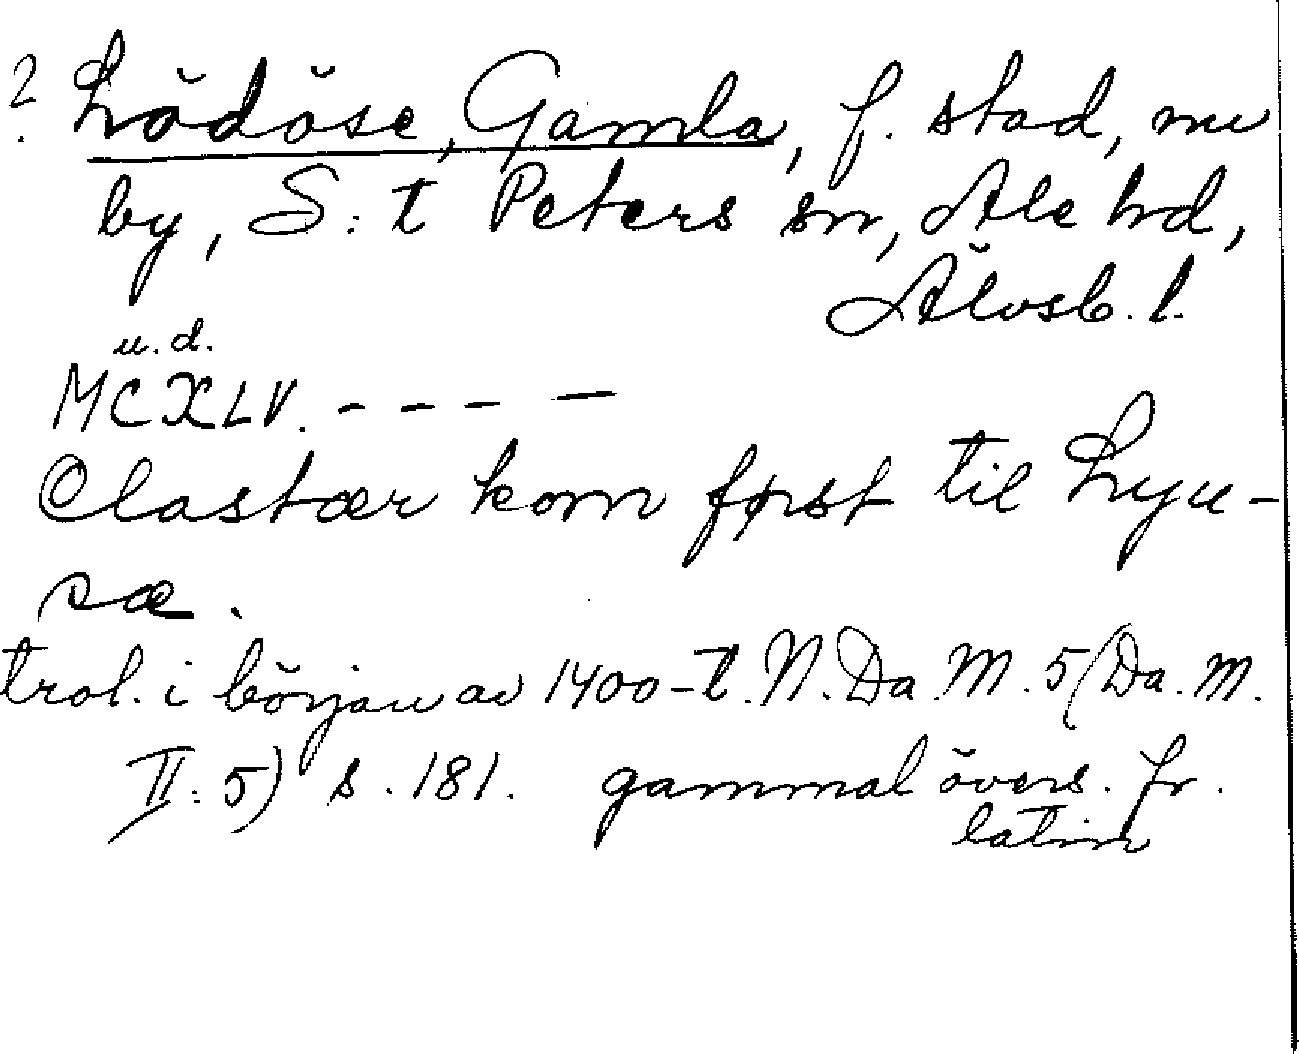 ? Lödöse, Gamla, f. stad, nu
by, S:t Peters sn, Ale hd,
Älvsb. l.
u. d.
MCXLV. - - - —
Clastær kom først til Lyu-
sæ.
trol. i början av 1400-t. N. Da. M. 5 (Da. M.
II: 5) s. 181. gammal övers. fr.
latin